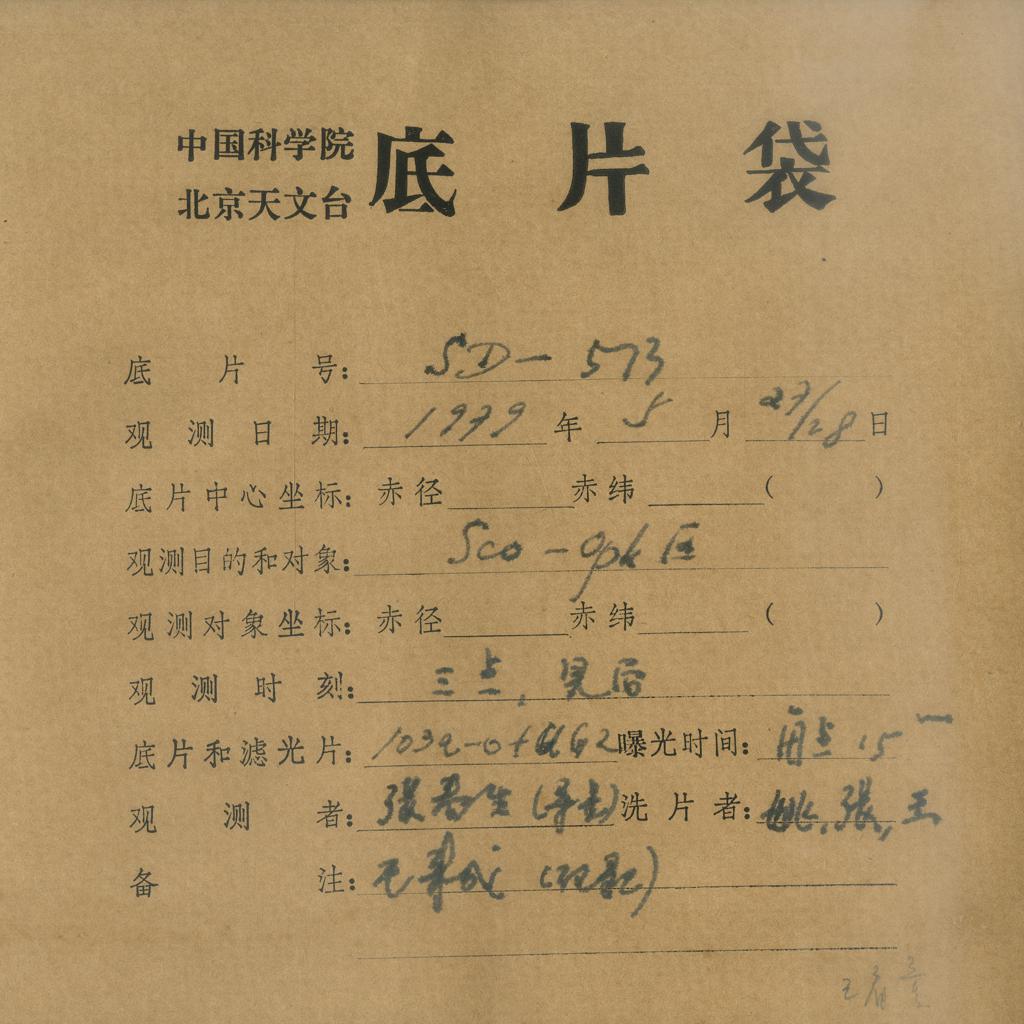 中国科学院
北京天文台
底片袋
底片号： SD-573
观测日期： 1979 年 5 月 27/28 日
底片中心坐标： 赤径 赤纬 （ ）
观测目的和对象： Sco - oph 区
观测对象坐标： 赤径 赤纬 （ ）
观测时刻： 三点,
底片和滤光片： 103a-O+GG2 曝光时间： 每点 15
观测者： 张春生 (导封) 洗片者： 姚,张,王
备注：